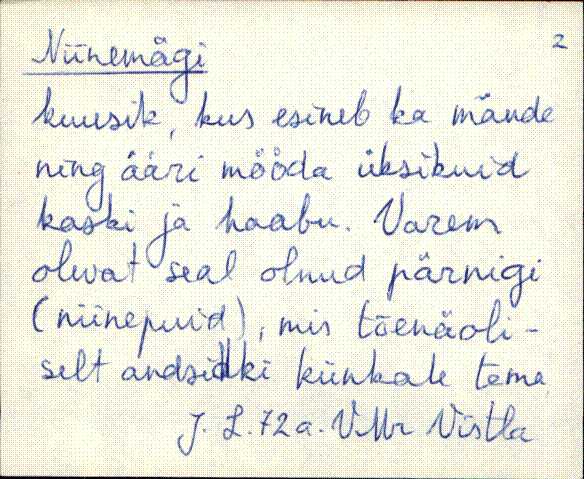 Niinemägi 2
kuusik, kus esineb ka mände
ning ääri mööda üksikuid
kaski ja haabu. Varem
olevat seal olnud pärnigi
(niinepuid), mis tõenäoli-
selt andsidki künkale tema
J. L. 72 a. VMr Vistla